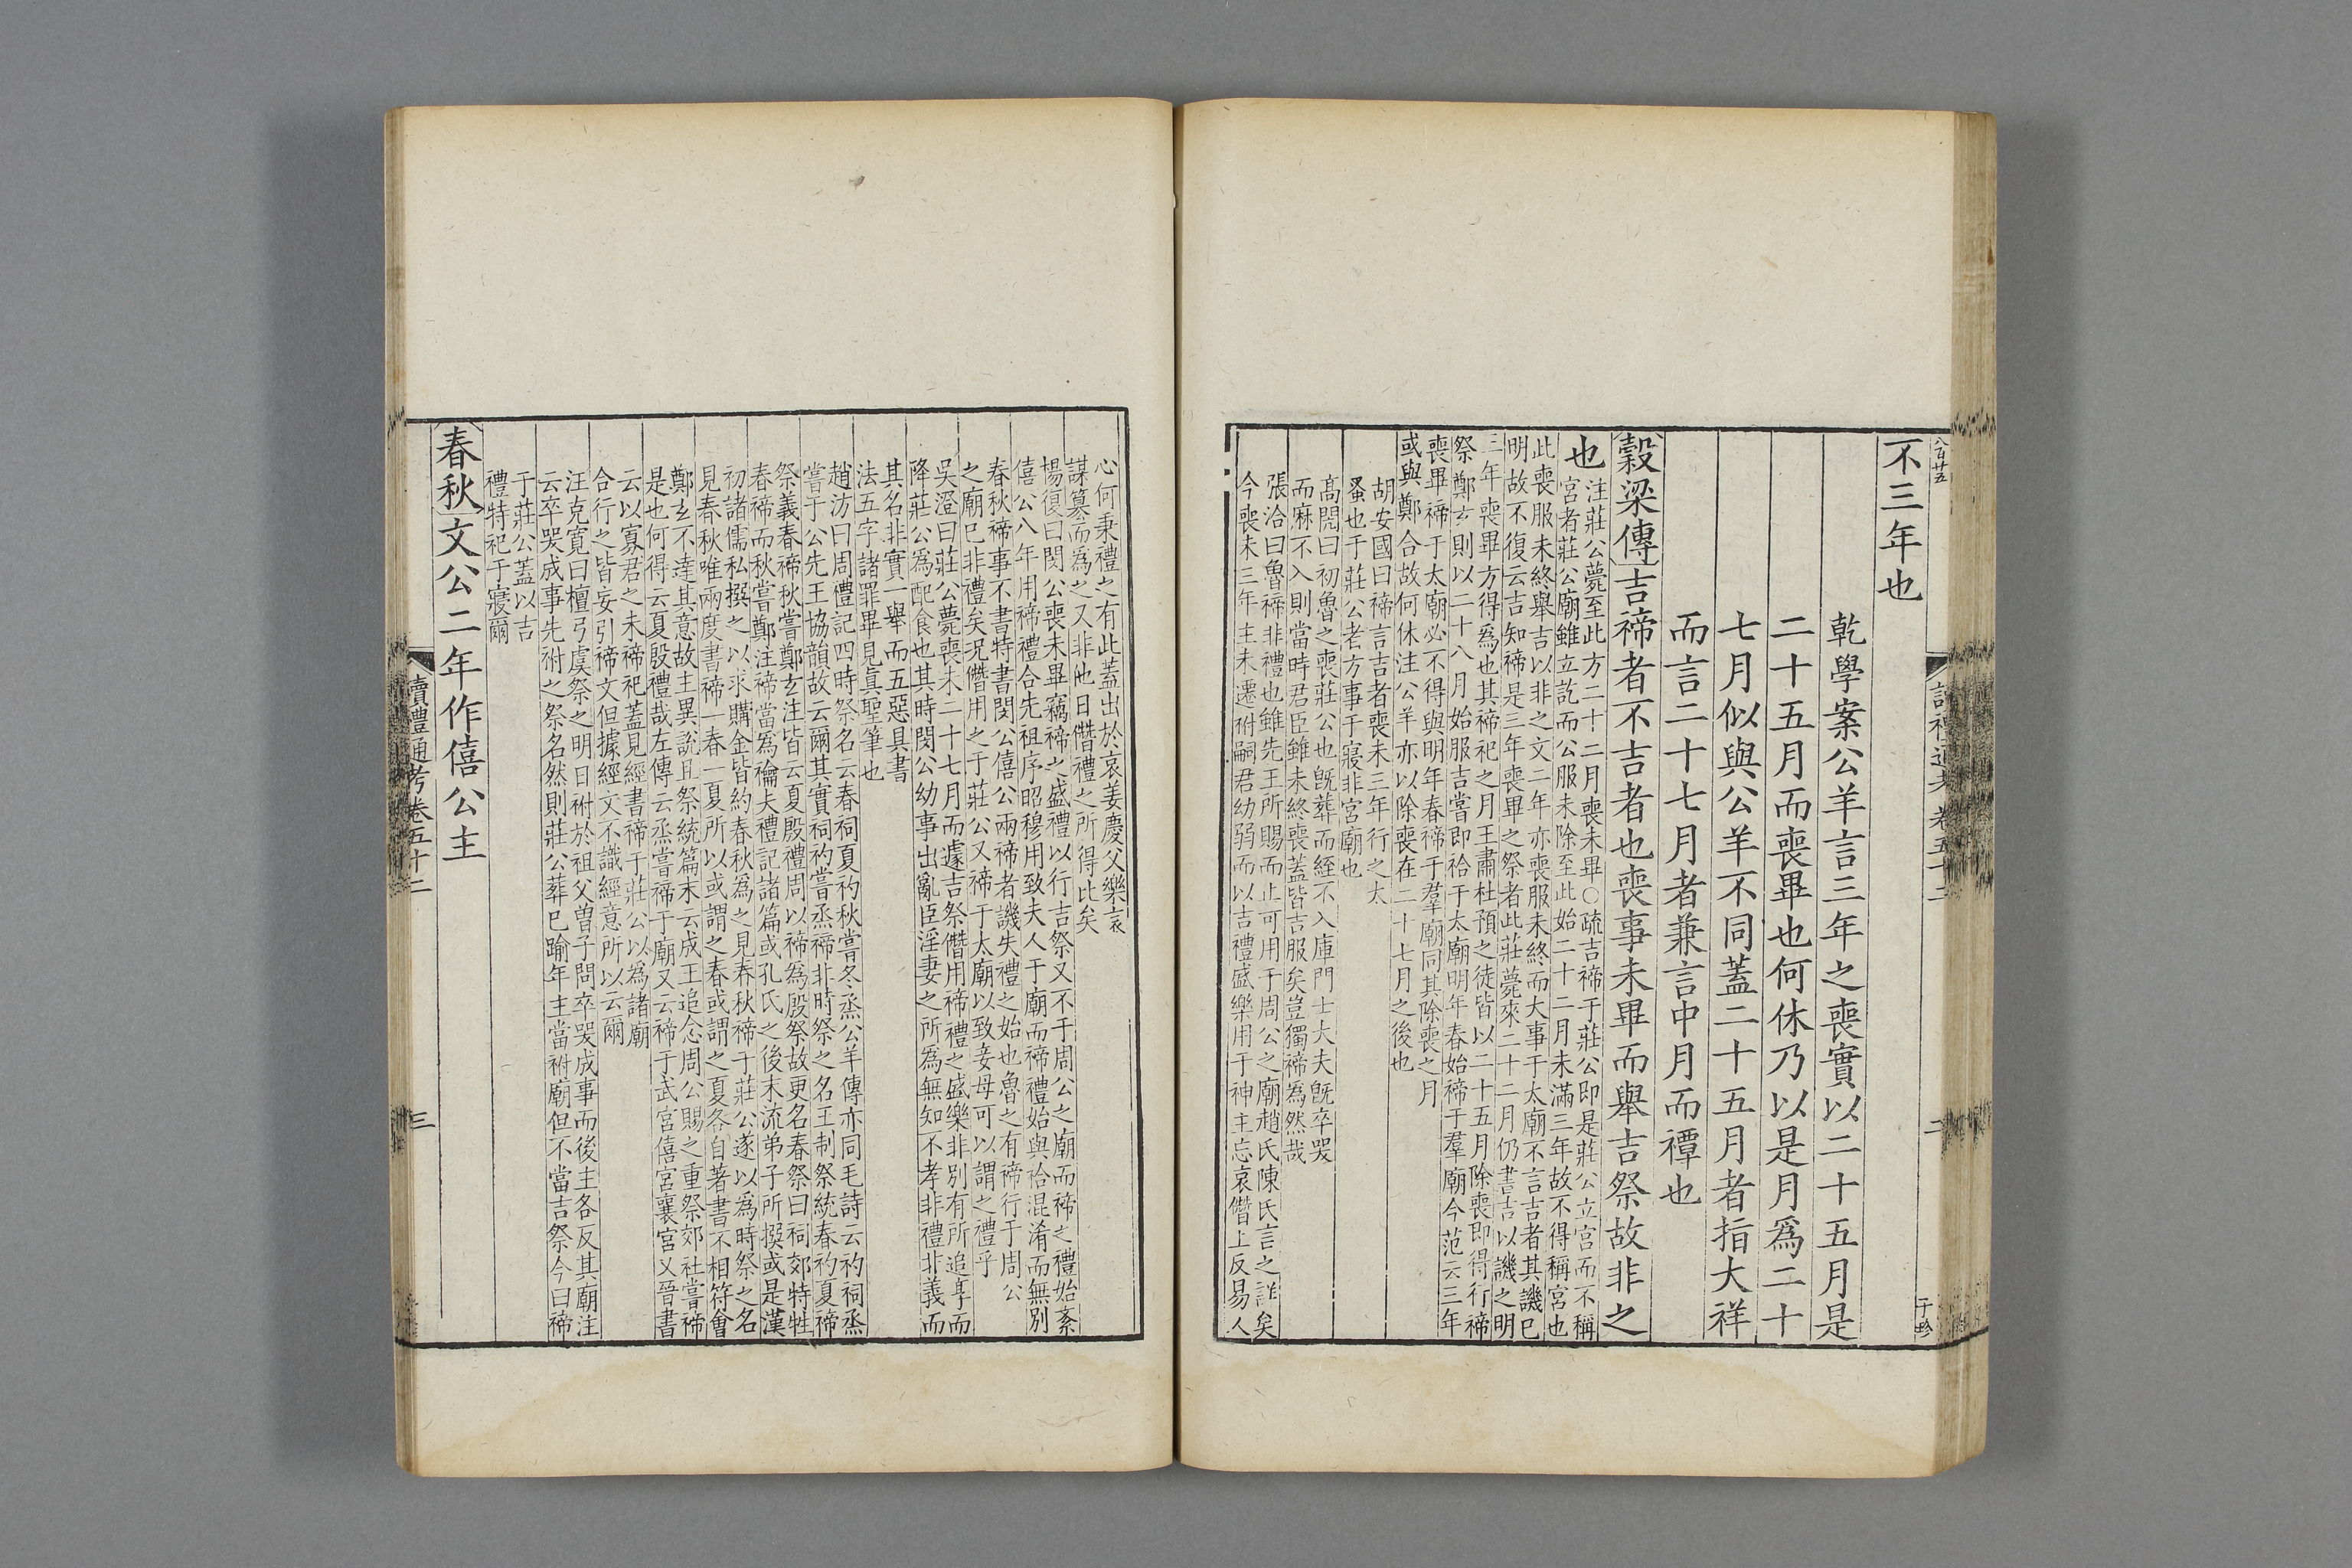 八百廿五
讀禮通考 卷五十二
二
不三年也
乾學案公羊言三年之喪實以二十五月是
二十五月而喪畢也何休乃以是月爲二十
七月似與公羊不同蓋二十五月者指大祥
而言二十七月者兼言中月而禫也
穀梁傳吉禘者不吉者也喪事未畢而舉吉祭故非之
也
注莊公薨至此方二十二月喪未畢〇疏吉禘于莊公即是莊公立宮而不稱
宮者莊公廟雖立訖而公服未除至此始二十二月未滿三年故不得稱宮也
此喪服未終舉吉以非之文二年亦喪服未終而大事于太廟不言吉者其譏已
明故不復云吉知禘是三年喪畢之祭者此莊薨來二十二月仍書吉以譏之明
三年喪畢方得爲也其禘祀之月王肅杜預之徒皆以二十五月除喪即得行禘
祭鄭玄則以二十八月始服吉當即祫于太廟明年春始禘于羣廟今范云三年
喪畢禘于太廟必不得與明年春禘于羣廟同其除喪之月
或與鄭合故何休注公羊亦以除喪在二十七月之後也
胡安國曰禘言吉者喪未三年行之太
蚤也于莊公者方事于寢非宮廟也
高閌曰初魯之喪莊公也旣葬而絰不入庫門士大夫旣卒哭
而麻不入則當時君臣雖未終喪蓋皆吉服矣豈獨禘爲然哉
張洽曰魯禘非禮也雖先王所賜而止可用于周公之廟趙氏陳氏言之詳矣
今喪未三年主未遷祔嗣君幼弱而以吉禮盛樂用于神主忘哀僭上反易人
心何秉禮之有此蓋出於哀姜慶父樂哀
謀簒而爲之又非他日僭禮之所得比矣
楊復曰閔公喪未畢竊禘之盛禮以行吉祭又不于周公之廟而禘之禮始紊
僖公八年用禘禮合先祖序昭穆用致夫人于廟而禘禮始與祫混淆而無別
春秋禘事不書特書閔公僖公兩禘者譏失禮之始也魯之有禘行于周公
之廟已非禮矣況僭用之于莊公又禘于太廟以致妾母可以謂之禮乎
吳澄曰莊公薨喪未二十七月而遽吉祭僭用禘禮之盛樂非別有所追享而
降莊公爲配食也其時閔公幼事出亂臣淫妻之所爲無知不孝非禮非義而
其名非實一舉而五惡具書
法五字諸罪畢見眞聖筆也
趙汸曰周禮記四時祭名云春祠夏礿秋嘗冬烝公羊傳亦同毛詩云礿祠烝
嘗于公先王協韻故云爾其實祠礿嘗烝禘非時祭之名王制祭統春礿夏禘
祭義春禘秋嘗鄭玄注皆云夏殷禮周以禘爲殷祭故更名春祭曰祠郊特牲
春禘而秋嘗鄭注禘當爲禴夫禮記諸篇或孔氏之後末流弟子所撰或是漢
初諸儒私撰之以求購金皆約春秋爲之見春秋禘于莊公遂以爲時祭之名
見春秋唯兩度書禘一春一夏所以或謂之春或謂之夏各自著書不相符會
鄭玄不達其意故主異說且祭統篇末云成王追念周公賜之重祭郊社嘗禘
是也何得云夏殷禮哉左傳云烝嘗禘于廟又云禘于武宮僖宮襄宮又晉書
云以寡君之未禘祀蓋見經書禘于莊公以爲諸廟
合行之皆妄引禘文但據經文不識經意所以云爾
汪克寬曰檀弓虞祭之明日祔於祖父曾子問卒哭成事而後主各反其廟注
云卒哭成事先祔之祭名然則莊公葬已踰年主當祔廟但不當吉祭今曰禘
于莊公蓋以吉
禮特祀于寢爾
春秋文公二年作僖公主
讀禮通考卷五十二
三